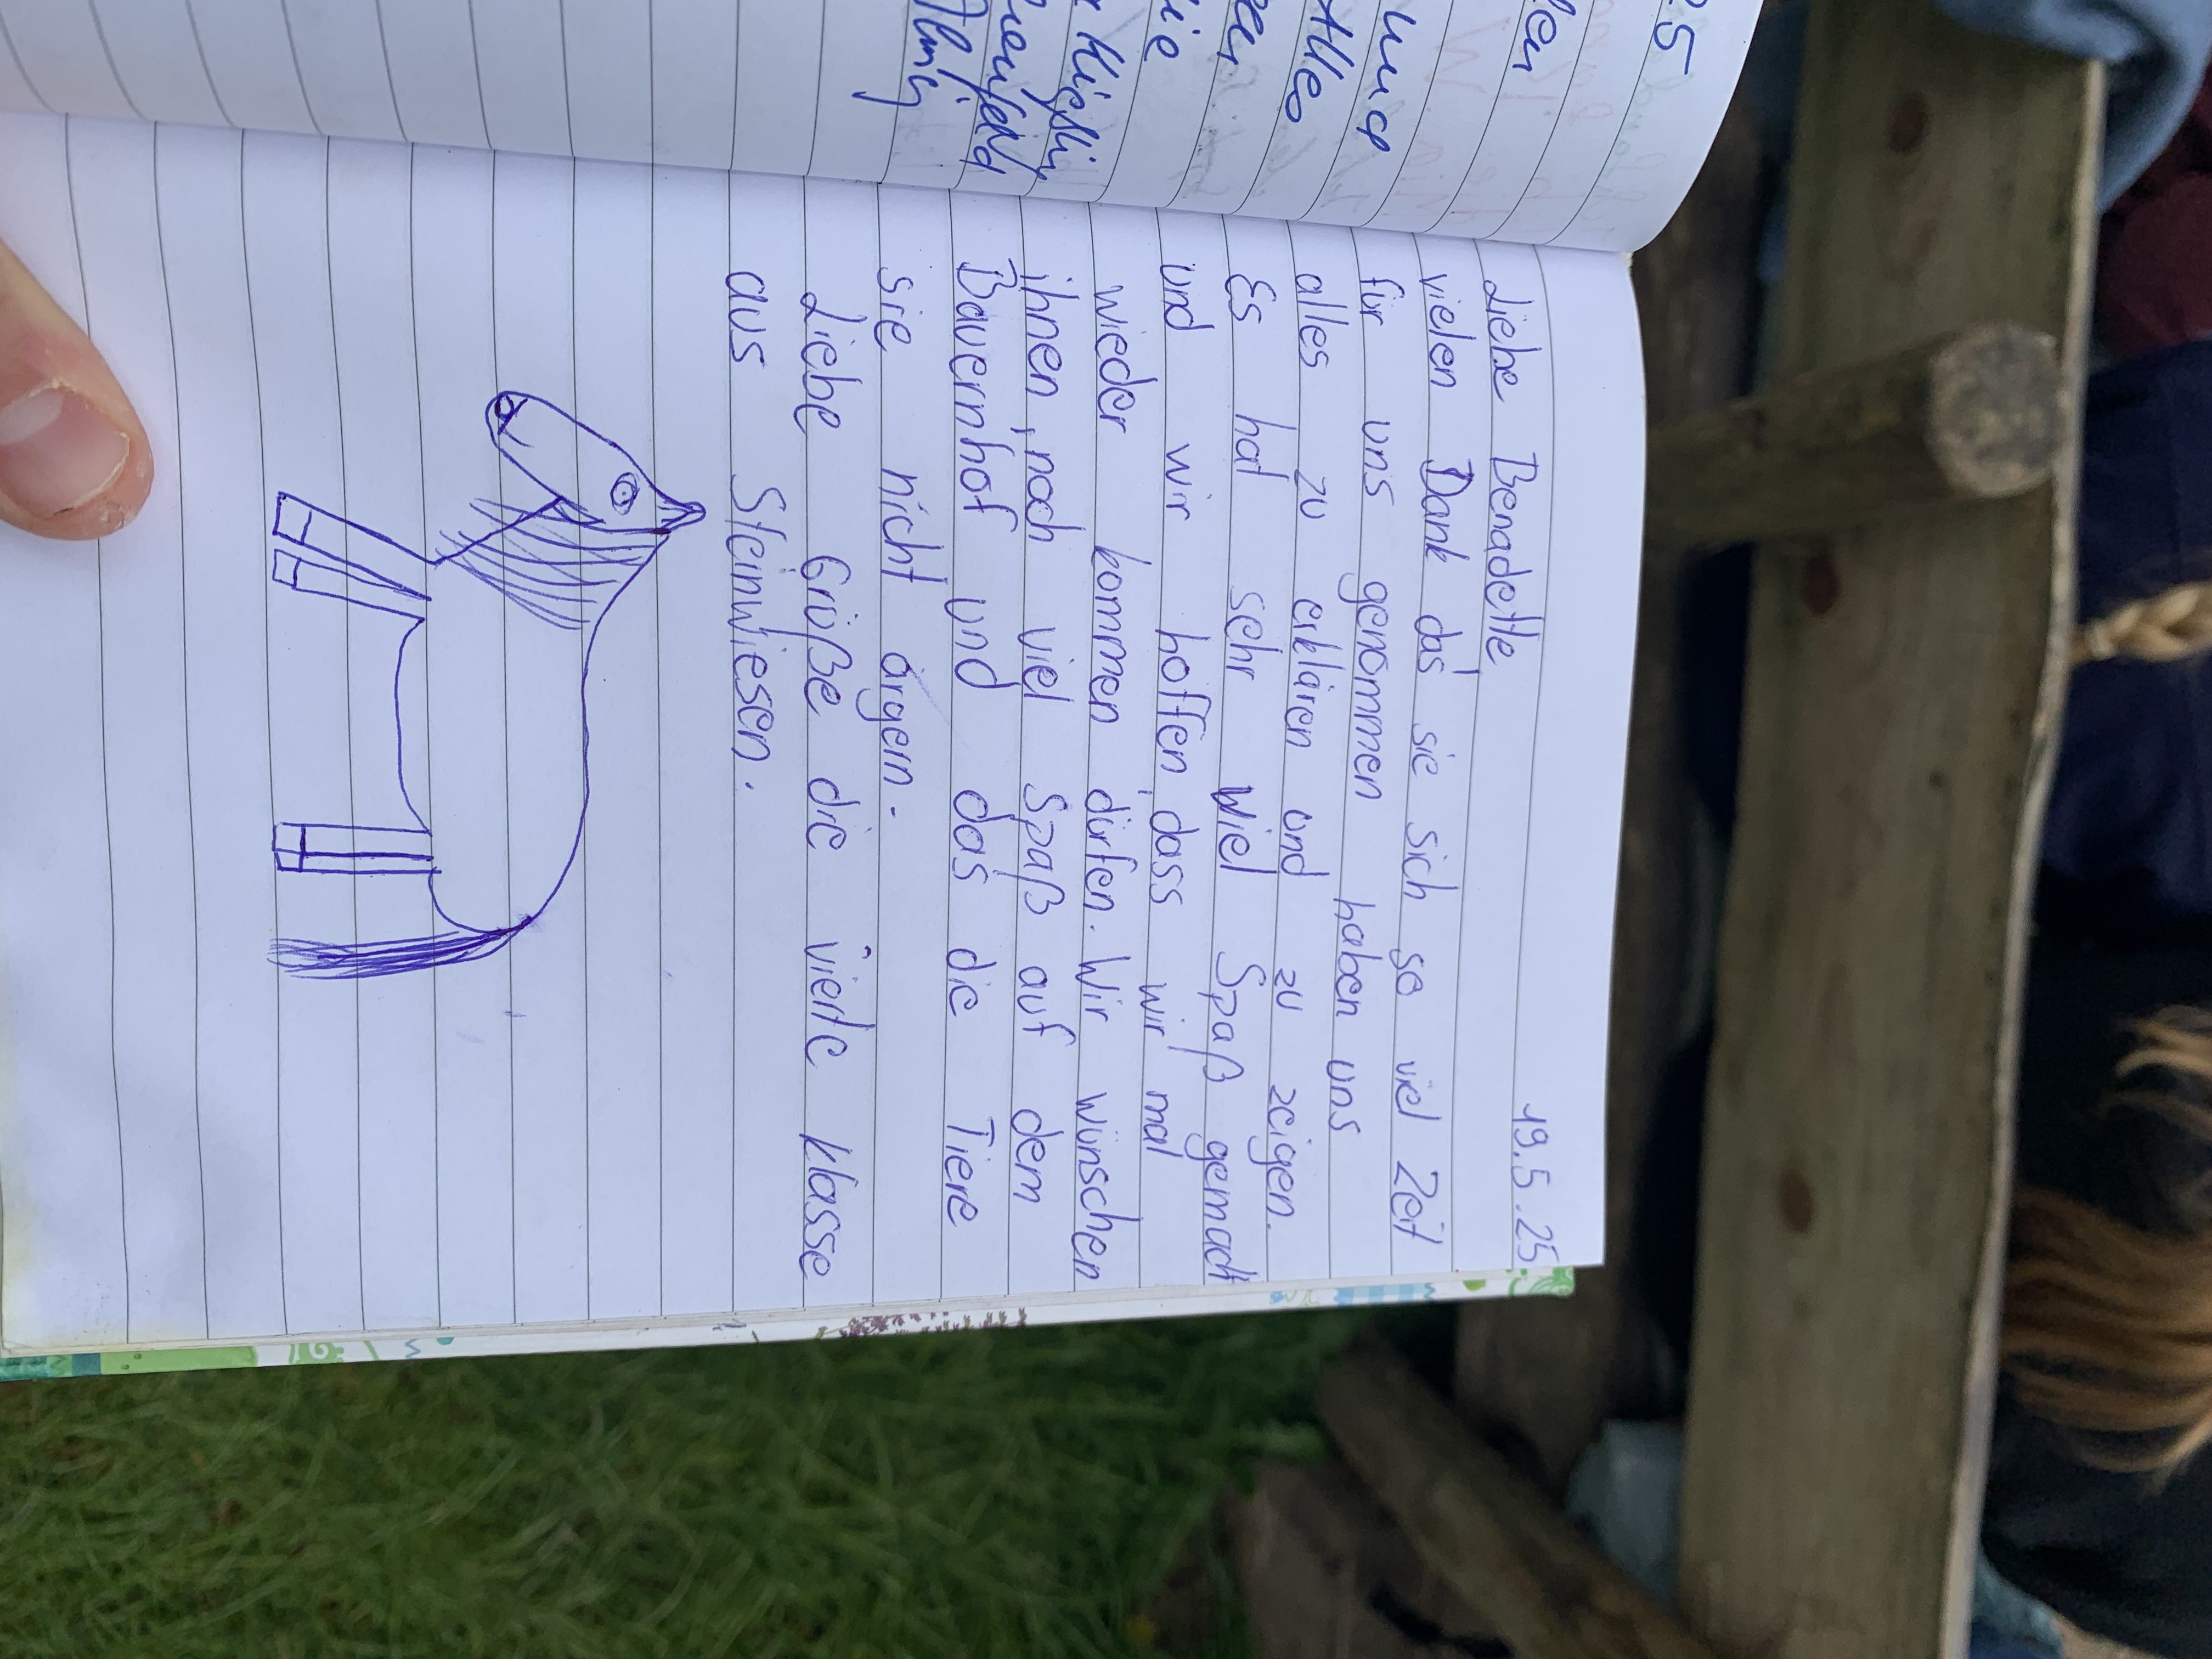 25
und
Alles
die
19.5.25
Liebe Benadette
vielen Dank das sie sich so viel Zeit
für uns genommen haben uns
alles zu erklären und zu zeigen.
Es hat sehr viel Spaß gemacht
und wir hoffen, dass wir mal
wieder kommen dürfen. Wir wünschen
ihnen, noch viel Spaß auf dem
Bauernhof und das die Tiere
sie nicht ärgern.
Liebe Grüße die vierte Klasse
aus Steinwiesen.